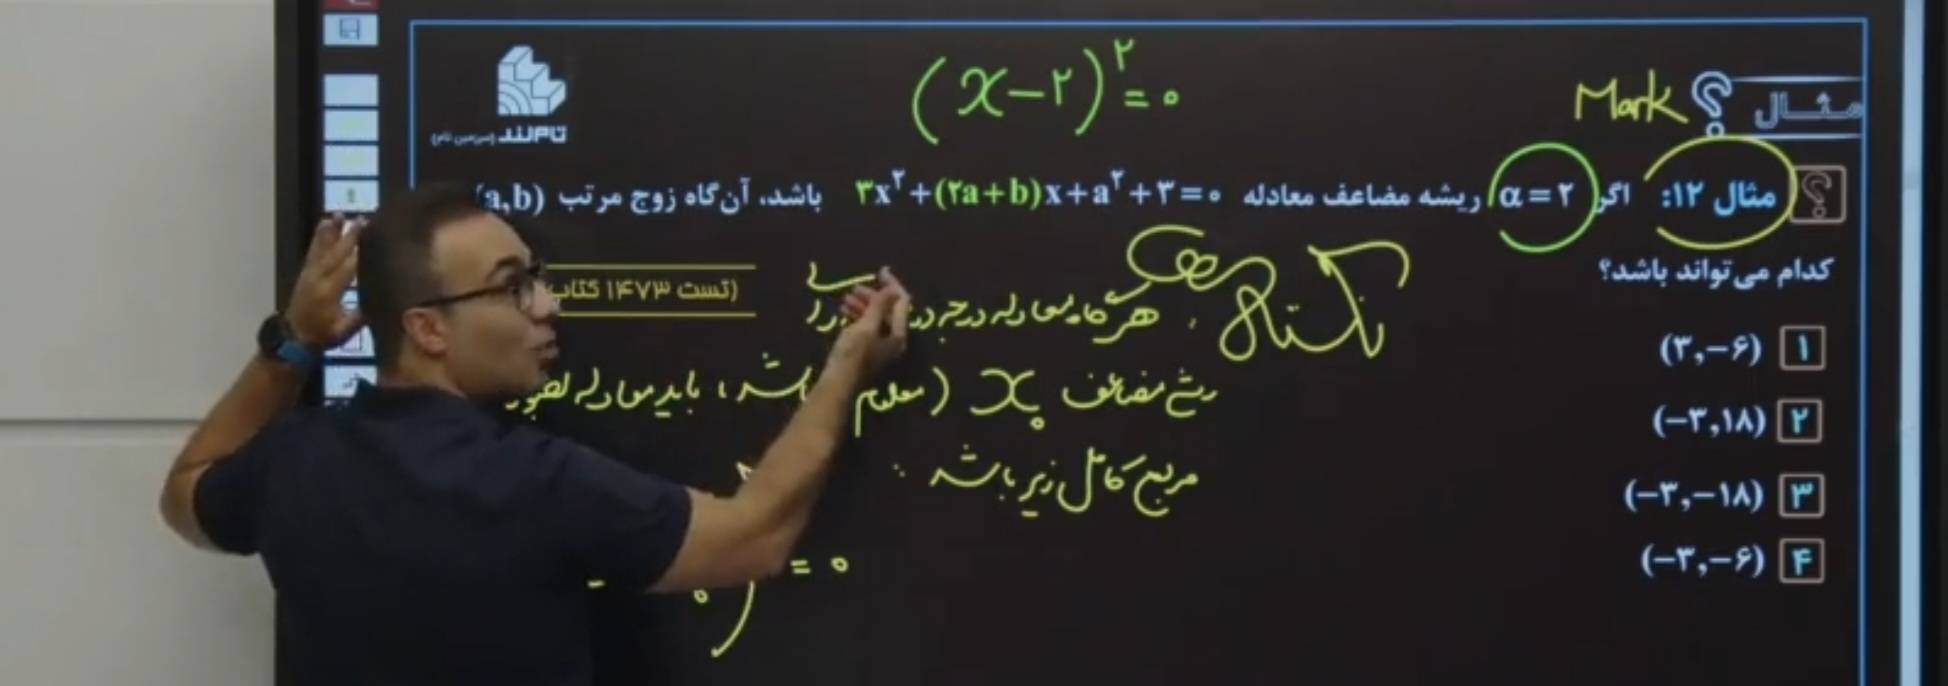 (x-۲)^۲ = ۰
Mark
مثال
تام‌لند (سرزمین تام)
مثال ۱۲: اگر α = ۲ ریشه مضاعف معادله ۳x^۲+(۲a+b)x+a^۲+۳=۰ باشد، آن‌گاه زوج مرتب (a,b)
کدام می‌تواند باشد؟
(تست ۱۴۷۳ کتاب
۱ (۳,-۶)
۲ (-۳,۱۸)
۳ (-۳,-۱۸)
۴ (-۳,-۶)
نکته: هرگاه معادله درجه
مضاعف x₀ (معلوم باشد، باید معادله بصورت
مربع کامل زیر باشد:
= ۰